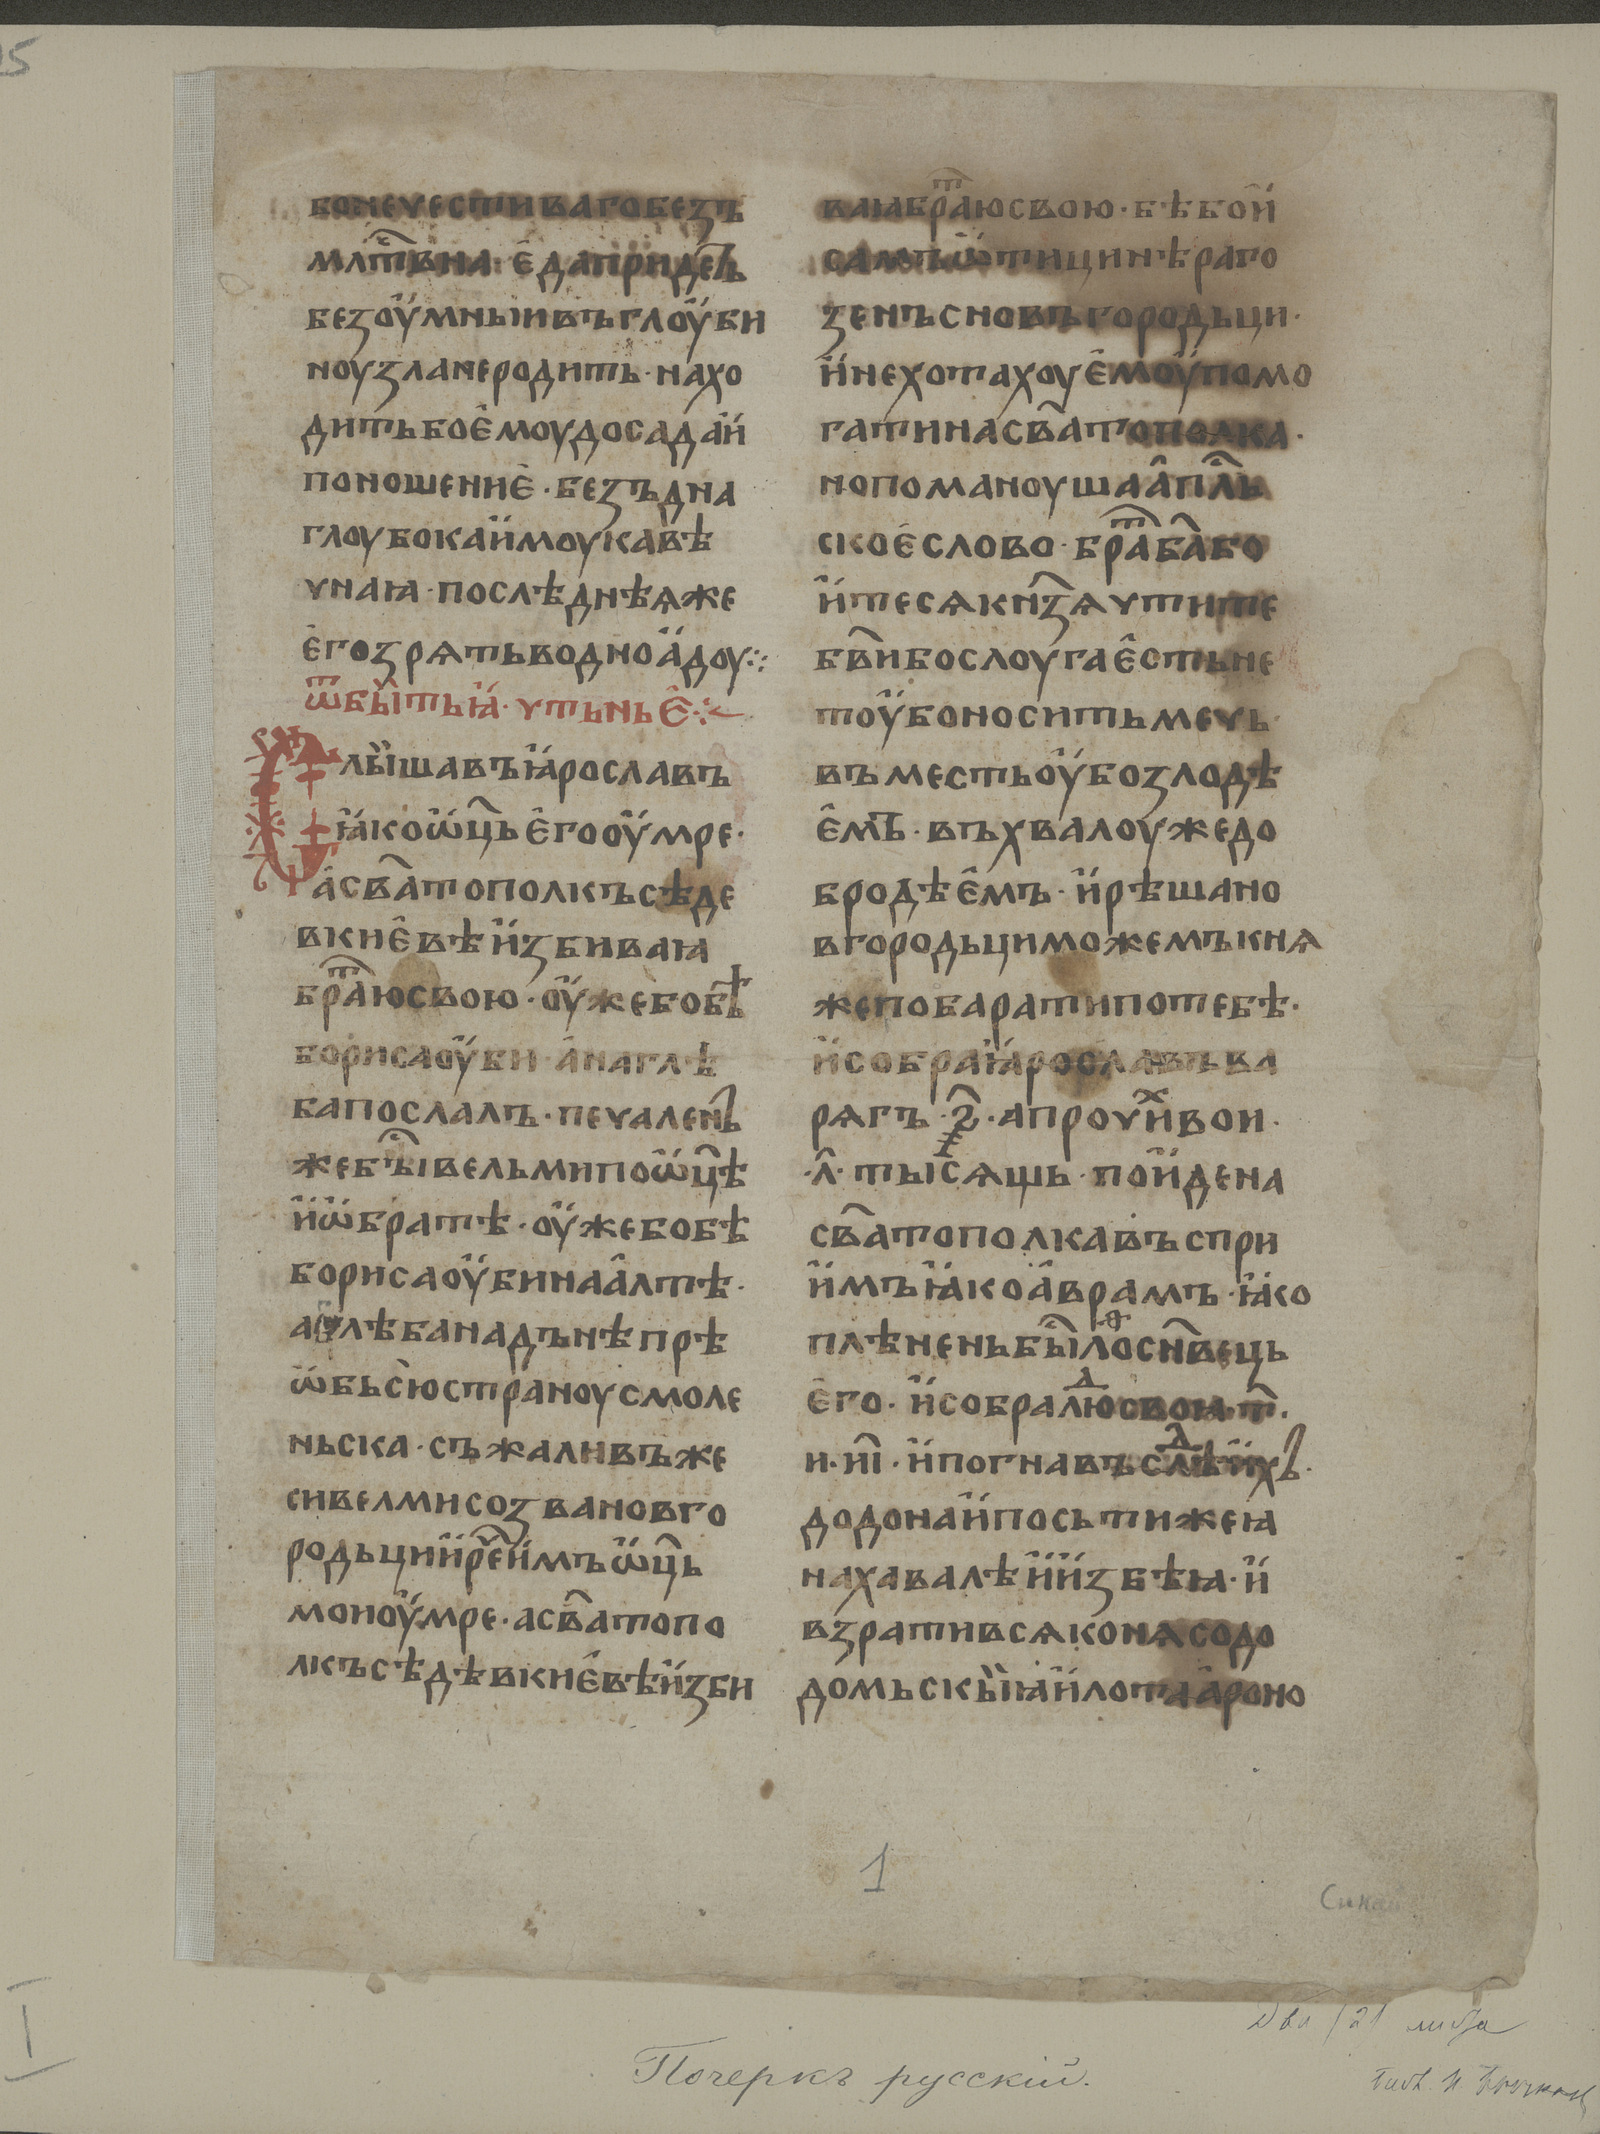 25
бонечестивагобезъ
млт҃вна · є҆даприде́ть
безоу҆мныивъглоу҆би
ноузланеродить · нахо
дитьбоє҆моудосадаи҆
поношениє҆ · безъдна
глоубокаи҆моукавѣ
чнаꙗ · послѣднѣѧже
є҆гозрѧтьводноа҆доу ⁘
ѿбы҆тьꙗ҆ · чтьньє҆ ⁘
Слы҆шавъꙗ҆рославъ
ꙗ҆коѡ҆ц҃ьє҆гооу҆мре ·
а҆св҃атополкъсѣде
вкиє҆вѣи҆збиваꙗ
бра҃тюсвою · оу҆жебобѣ
борисаоу҆би · а҆наглѣ
бапослалъ · печаленъ
жебы҆вельмипоѡ҆ц҃ѣ
и҆ѡ҆братѣ · оу҆жебобѣ
борисаоу҆бинаа҆лтѣ ·
аглѣбанадънѣпрѣ
ѡ҆бьсюстраноусмоле
ньска · съжаливъже
сивелмисозвановго
родьциии҆рч҃еи҆мъѡ҆ц҃ь
моиоу҆мре · асв҃атопо
лкъсѣдѣвкиє҆вѣи҆зби
ваꙗбра҃тюсвою · бѣбои҆
самъѡ҆тицинѣраго
зенъсновъгородьци ·
и҆нехотахоує҆моу҆помо
гатинасв҃атополка ·
нопоманоушаа҆пл҃ь
скоє҆слово · бра҃таба҃бо
и҆тесѧкнз҃ѧчтите
бв҃ибослоугає҆стьне
тоу҆боноситьмечь ·
въместьоу҆бозлодѣ
є҆мъ · въхвалоужедо
бродѣє҆мъ · и҆рѣшано
вгородьциможемъкнѧ
жепобаратипотебѣ ·
и҆собраꙗ҆рославъва
рѧгъ · ҂з҃ · апрочи҆хвои ·
· л҃ · тысѧщь · пои҆дена
св҃атополкавъспри
и҆мъꙗ҆коа҆врамъ · ꙗ҆ко
плѣненьбы҆лѳосн҃вець
є҆го · и҆собралюдсвоꙗ · т҃ ·
и · и҃і · и҆погнавъслѣди҆хъ ·
додонаи҆посьтижеꙗ
нахавалѣи҆и҆збѣꙗ · и҆
взратисвѧконѧсодо
домьскы҆ꙗ҆и҆лотаа҆роно
1
Почеркъ русскій.
Два (2) листа
I